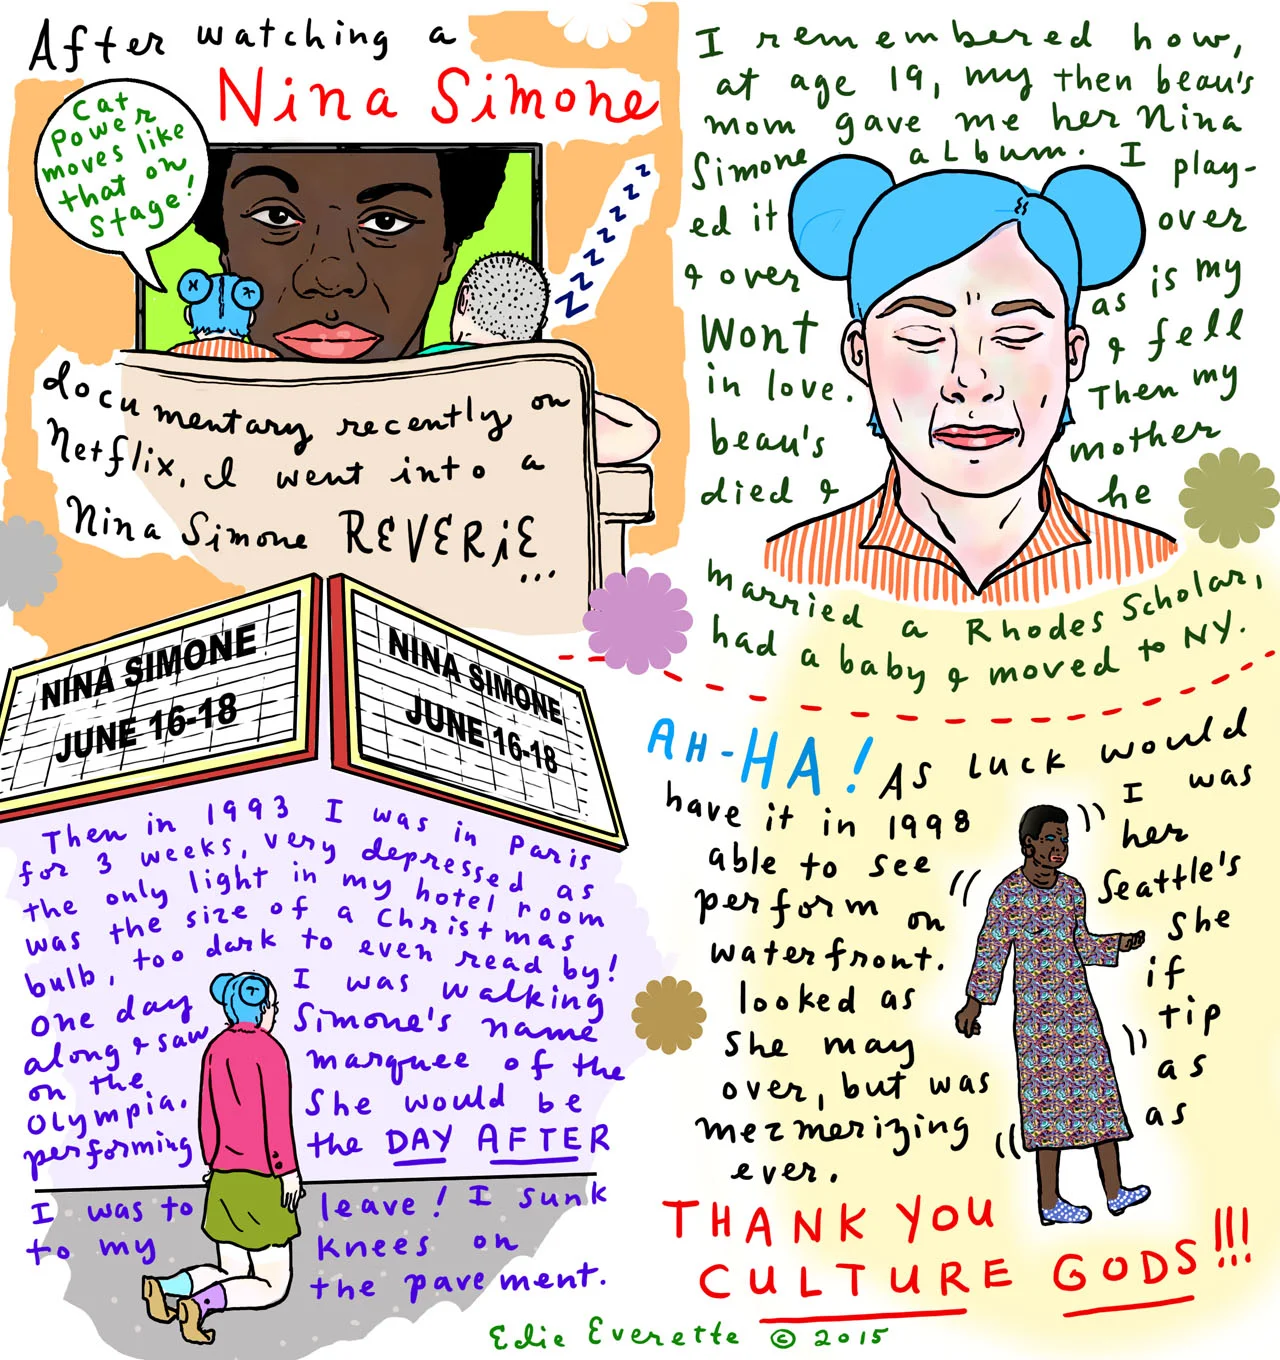 After watching a
Nina Simone
Cat
Power
moves like
that on
stage!
zzzzzzzzz
documentary recently on
Netflix, I went into a
Nina Simone REVERiE...
I remembered how,
at age 19, my then beau's
mom gave me her Nina
Simone album. I play-
ed it over
& over as is my
Wont & fell
in love. Then my
beau's mother
died & he
married a Rhodes Scholar,
had a baby & moved to NY.
NINA SIMONE
JUNE 16-18
NINA SIMONE
JUNE 16-18
Then in 1993 I was in Paris
for 3 weeks, very depressed as
the only light in my hotel room
was the size of a Christmas
bulb, too dark to even read by!
One day I was walking
along & saw Simone's name
on the marquee of the
Olympia. She would be
performing the DAY AFTER
I was to leave! I sunk
to my knees on
the pavement.
AH-HA! As luck would
have it in 1998 I was
able to see her
perform on Seattle's
waterfront. She
looked as if
she may tip
over, but was as
mezmerizing as
ever.
THANK YOU
CULTURE GODS!!!
Edie Everette © 2015